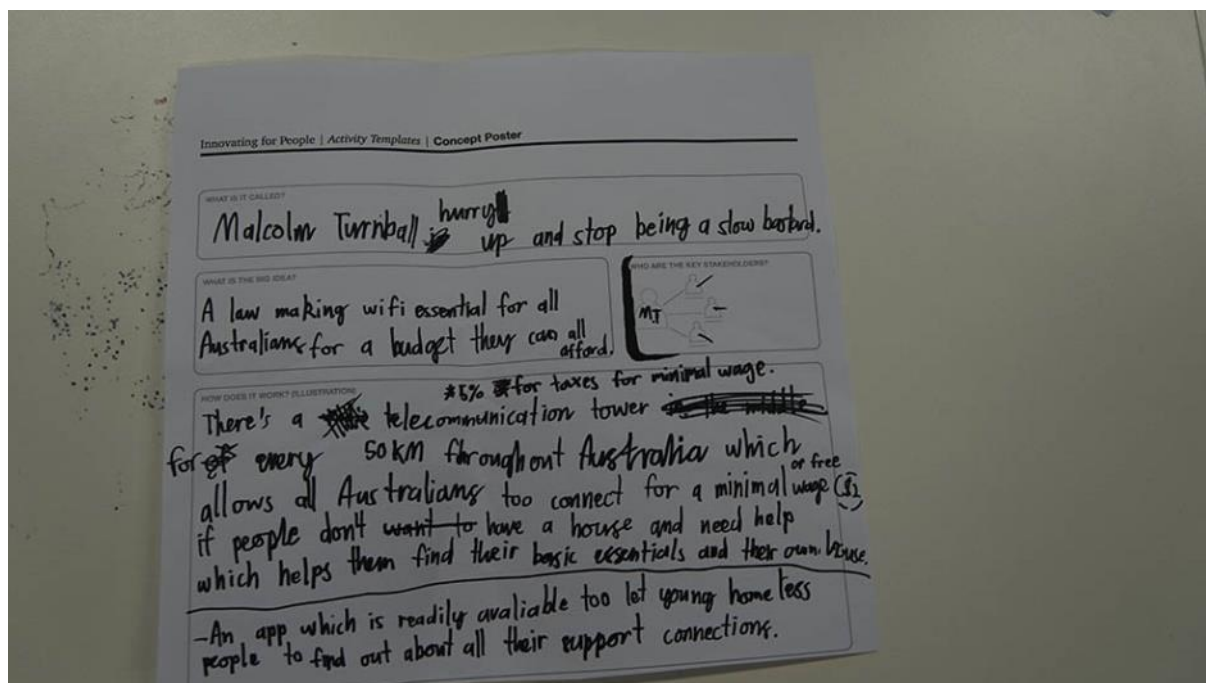 Innovating for People | Activity Templates | Concept Poster
WHAT IS IT CALLED?
Malcolm Turnball hurry up and stop being a slow bastard.
WHAT IS THE BIG IDEA?
A law making wifi essential for all
Australians for a budget they can all
afford.
WHO ARE THE KEY STAKEHOLDERS?
MT
HOW DOES IT WORK? (ILLUSTRATION)
*5% for taxes for minimal wage.
There's a telecommunication tower in the middle
for every 50KM throughout Australia which
allows all Australians too connect for a minimal wage or free ($2)
if people don't want to have a house and need help
which helps them find their basic essentials and their own house.
-An app which is readily avaliable too let young homeless
people to find out about all their support connections.